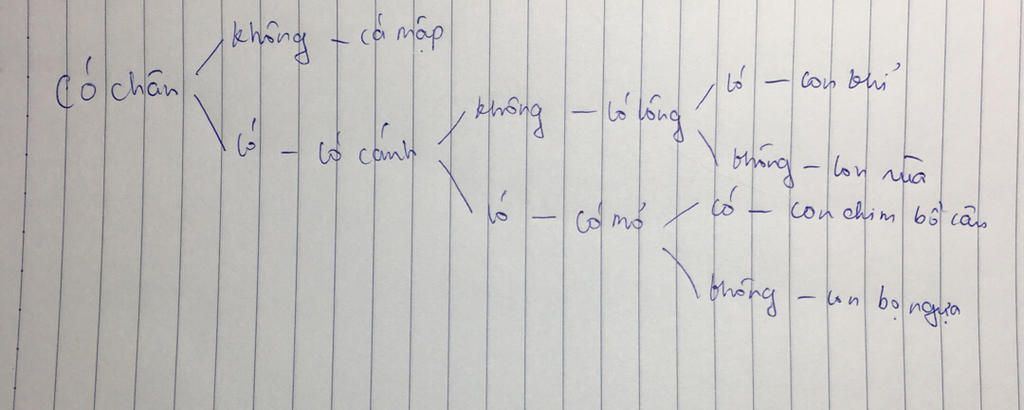 không – cá mập
Có chân
có – có cánh
không – có lông
có – con khỉ
không – con rùa
có – có mỏ
có – con chim bồ câu
không – con bọ ngựa